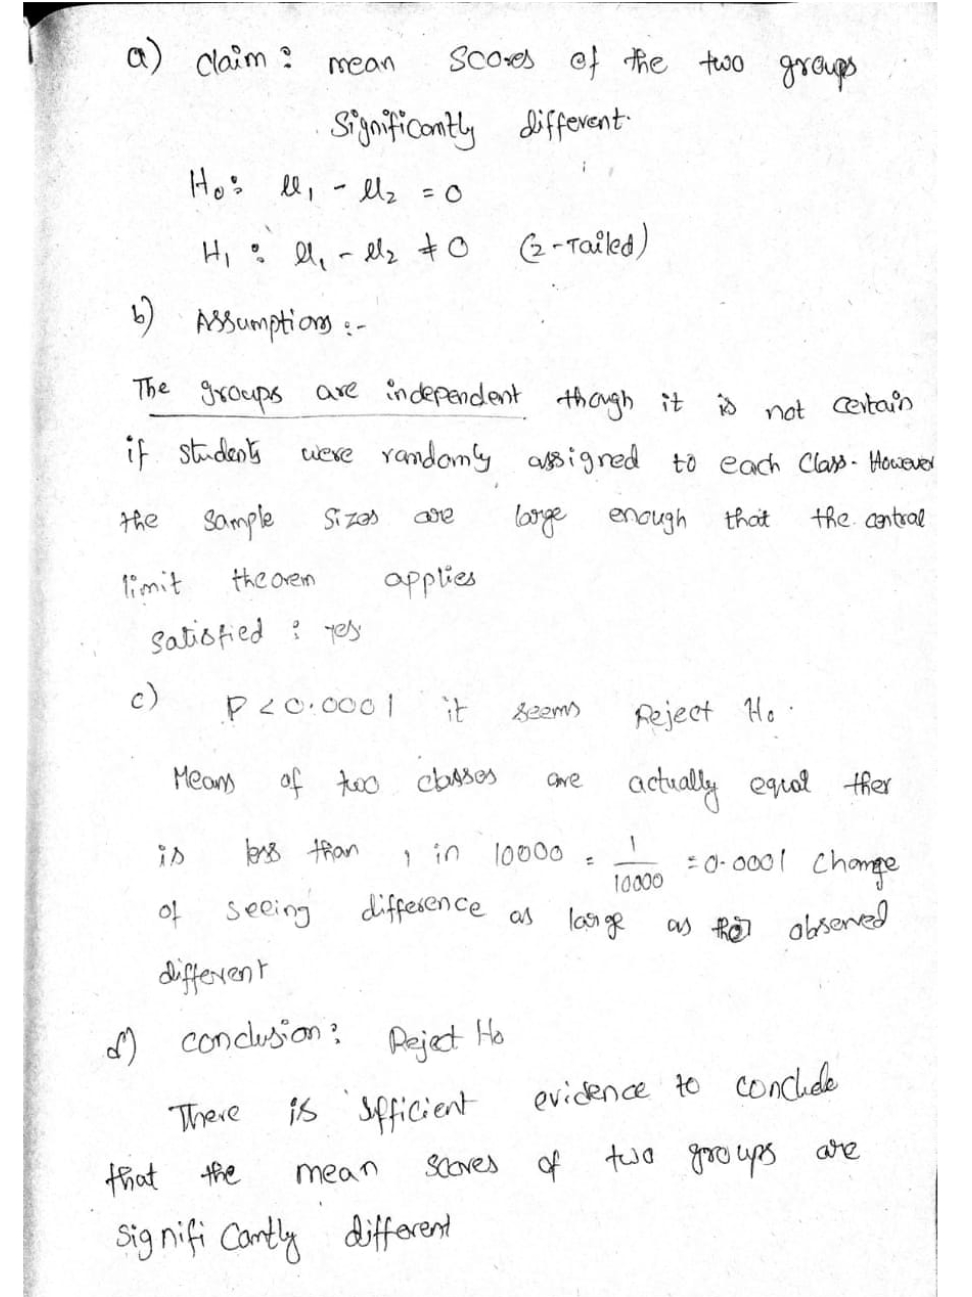 a) claim : mean scores of the two groups
Significantly different.
H₀ : μ₁ - μ₂ = 0
H₁ : μ₁ - μ₂ ≠ 0 (2-Tailed)
b) Assumptions :-
The groups are independent though it is not certain
if students were randomly assigned to each Class. However
the sample sizes are large enough that the central
limit theorem applies
satisfied : yes
c) P < 0.0001 it seems Reject H₀.
Means of two classes are actually equal ther
is less than 1 in 10000 = 1/10000 = 0.0001 change
of seeing difference as large as observed
different
d) conclusion : Reject H₀
There is sfficient evidence to conclude
that the mean scores of two groups are
significantly different